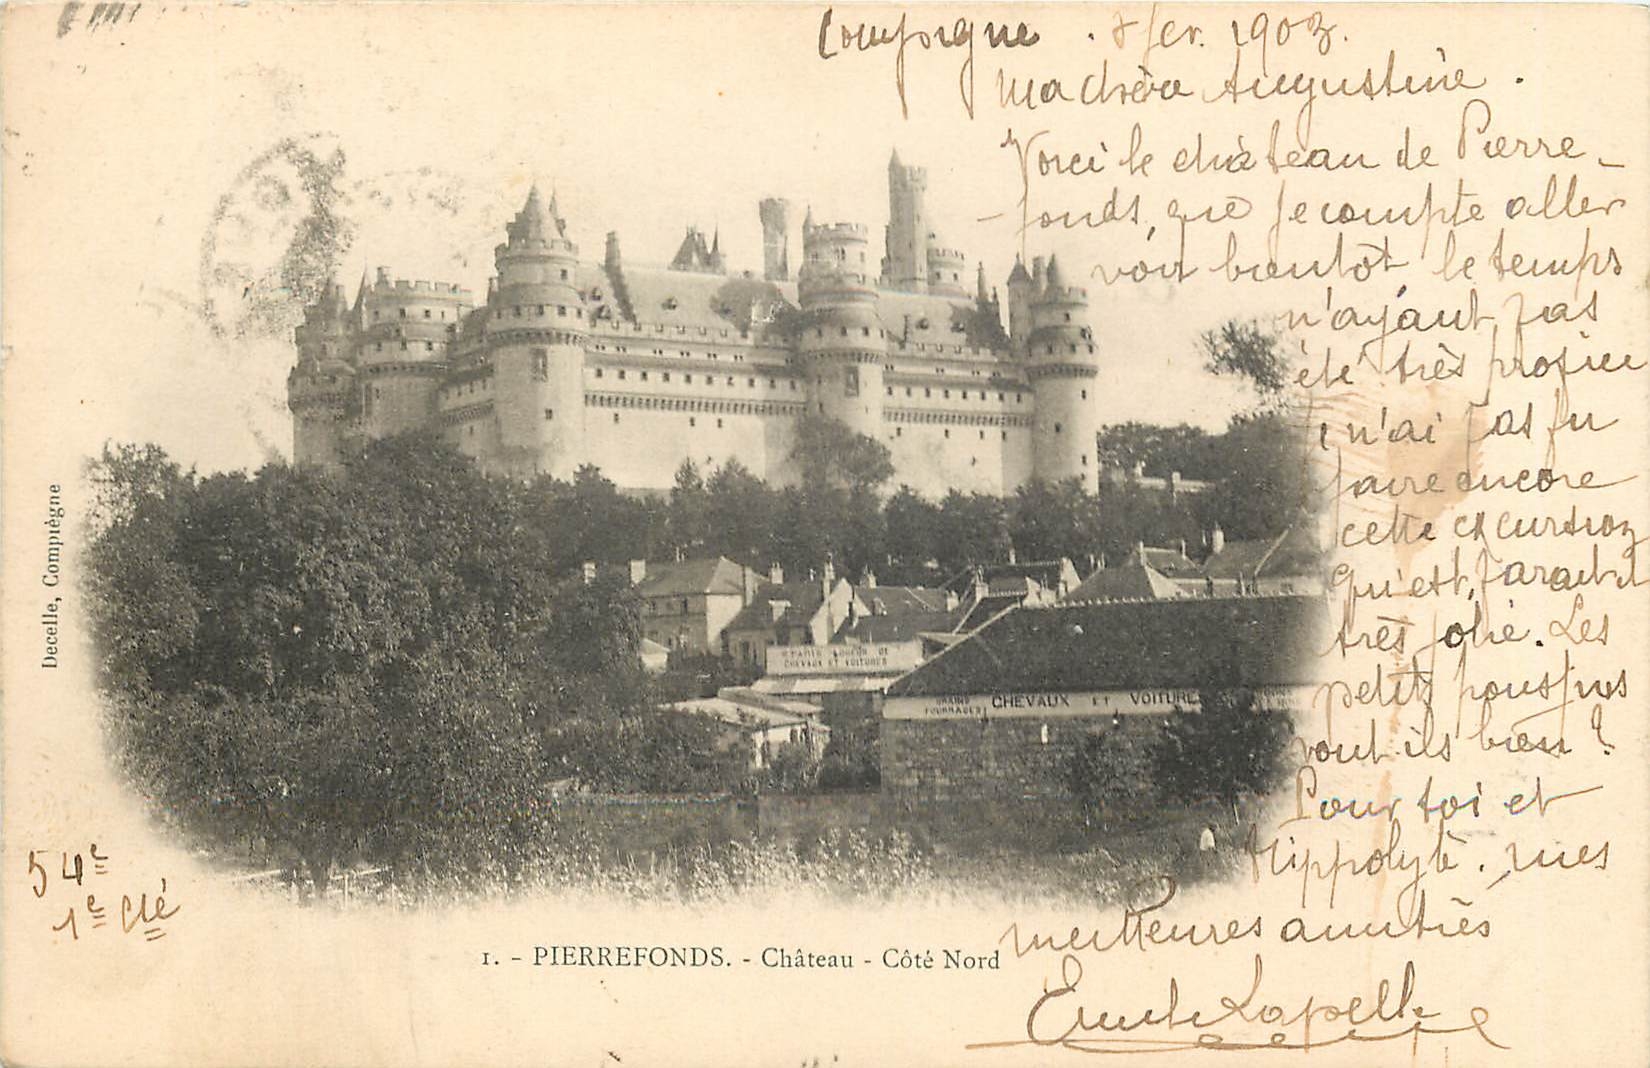 Compiègne . 8 fev. 1903.
Ma chère Augustine .
Voici le château de Pierre-
-fonds, que je compte aller
voir bientôt le temps
n'ayant pas
été très propice
n'ai pas pu
faire encore
cette excursion
qu'est, parait il
très jolie. Les
petits
vont ils bien ?
Pour toi et
Hippolyte. mes
meilleures amitiés
Emile Lapelle
54e
1e Clé
Decelle, Compiègne
LOUEUR DE
CHEVAUX ET VOITURES
GRAINS
FOURRAGES
CHEVAUX ET VOITURE
1. - PIERREFONDS. - Château - Côté Nord